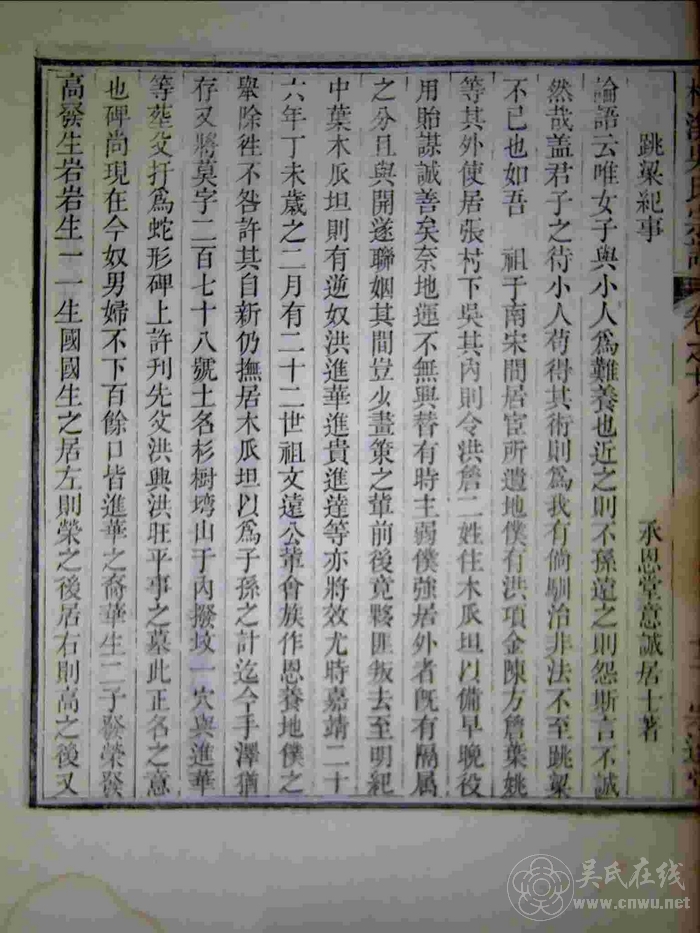 跳梁紀事
承恩堂意誠居士著
論語云唯女子與小人為難養也近之則不孫遠之則怨斯言不誠
然哉盖君子之待小人苟得其術則為我有倘馴治非法不至跳梁
不已也如吾 祖于南宋間居宦所遺地僕有洪項金陳方詹葉姚
等其外使居張村下吳其內則令洪詹二姓住木瓜坦以備早晚役
用貽謀誠善矣奈地運不無興替有時主弱僕強居外者既有隔属
之分且與開遂聯姻其間豈少畫策之輩前後竟夥匪叛去至明紀
中葉木瓜坦則有逆奴洪進華進貴進達等亦將效尤時嘉靖二十
六年丁未歲之二月有二十二世祖文遠公輩會族作恩養地僕之
舉除徃不咎許其自新仍撫居木瓜坦以為子孫之計迄今手澤猶
存又將莫字二百七十八號土名杉樹塆山于內撥坟一穴與進華
等塟父扦為蛇形碑上許刊先父洪興洪旺平事之墓此正名之意
也碑尚現在今奴男婦不下百餘口皆進華之裔華生二子發榮發
高發生岩岩生一一生國國生之居左則榮之後居右則高之後又
吴氏在线
www.cnwu.net